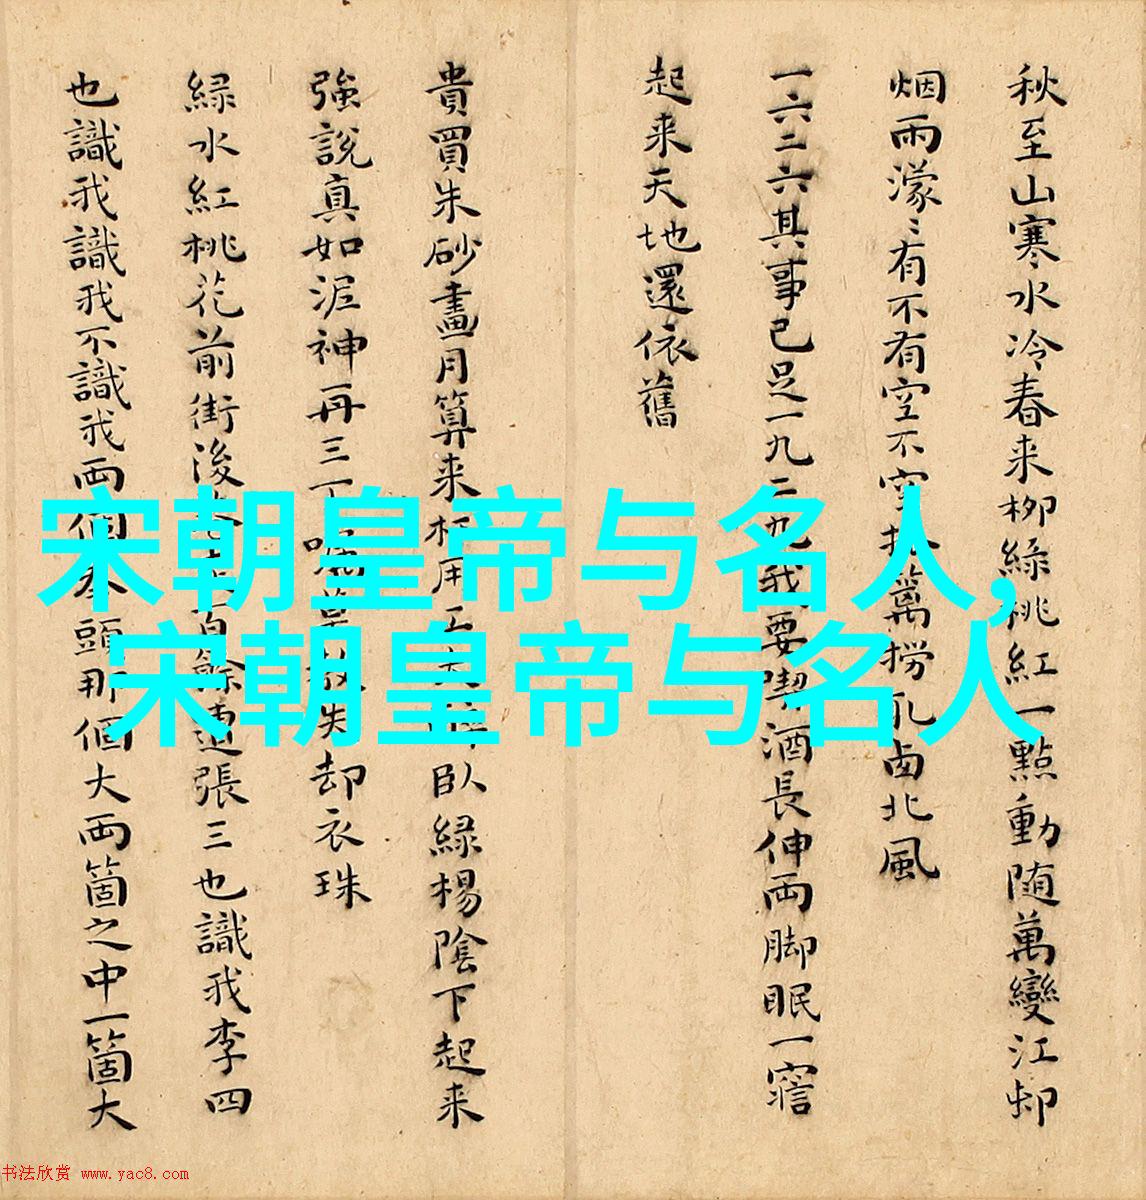 秋至山寒水冷春来柳綠桃紅一點動随萬變江邨
烟雨濛〻有不有空不空撈北風
一六二六其事已足一九二九我要喫酒長伸両脚眠一寤
起来天地還依舊
貴買朱砂畫月算来用工臥緑楊陰下起来
強說真如泥神再三丁嘱失却衣珠
緑水紅桃花前街後百餘遭張三也識我李四
也識我識我不識我両個頭那個大両箇之中一箇大
宋朝皇帝与名人,
宋朝皇帝与名人
书法欣赏 www.yac8.com